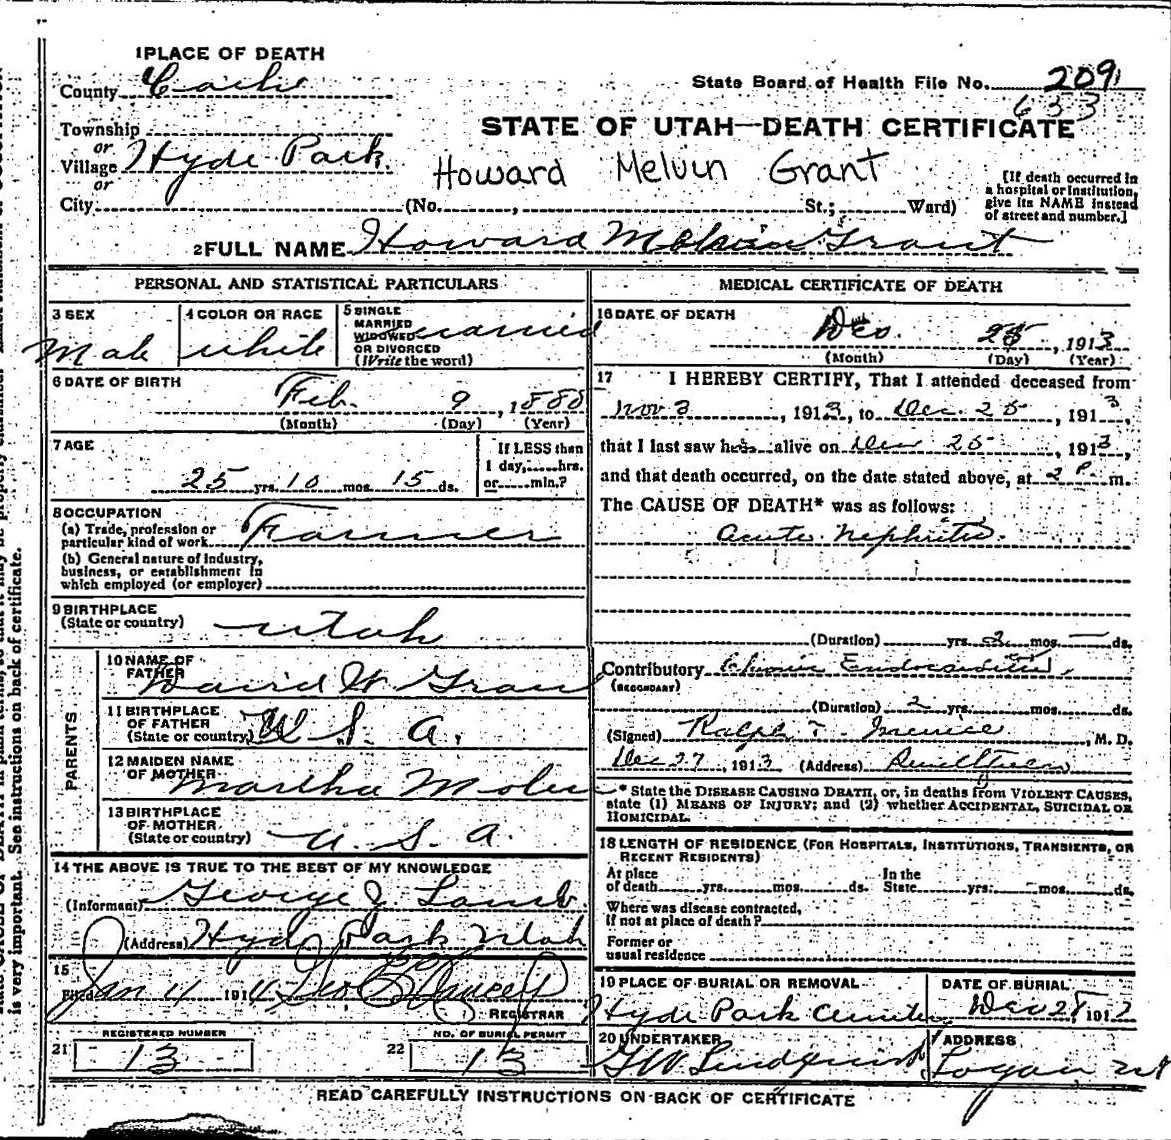 1 PLACE OF DEATH
County Cache
State Board of Health File No. 209
633
Township
or
Village Hyde Park
or
STATE OF UTAH—DEATH CERTIFICATE
Howard Melvin Grant
[If death occurred in a hospital or institution, give its NAME instead of street and number.]
City (No. , St.; Ward)
2 FULL NAME Howard Melvin Grant
PERSONAL AND STATISTICAL PARTICULARS
3 SEX
Male
4 COLOR OR RACE
white
5 SINGLE
MARRIED
WIDOWED
OR DIVORCED
(Write the word)
married
6 DATE OF BIRTH
Feb. 9, 1888
(Month) (Day) (Year)
7 AGE
25 yrs. 10 mos. 15 ds.
If LESS than
1 day, hrs.
or min.?
8 OCCUPATION
(a) Trade, profession or
particular kind of work Farmer
(b) General nature of industry,
business, or establishment in
which employed (or employer)
9 BIRTHPLACE
(State or country) Utah
PARENTS
10 NAME OF
FATHER David W Grant
11 BIRTHPLACE
OF FATHER
(State or country) U. S. A.
12 MAIDEN NAME
OF MOTHER Martha
13 BIRTHPLACE
OF MOTHER
(State or country) U. S. A.
14 THE ABOVE IS TRUE TO THE BEST OF MY KNOWLEDGE
(Informant) George J Lamb
(Address) Hyde Park Utah
15
Filed Jan 4 1914 Geo
REGISTRAR
REGISTERED NUMBER
21 13
NO. OF BURIAL PERMIT
22 13
MEDICAL CERTIFICATE OF DEATH
16 DATE OF DEATH
Dec. 25, 1913
(Month) (Day) (Year)
17 I HEREBY CERTIFY, That I attended deceased from
Nov 3, 1913, to Dec. 25, 1913,
that I last saw h alive on Dec 25 1913,
and that death occurred, on the date stated above, at 2 P. m.
The CAUSE OF DEATH* was as follows:
Acute Nephritis.
(Duration) yrs. 2 mos. — ds.
Contributory Chronic Endocarditis,
(SECONDARY)
(Duration) 2 yrs. mos. ds.
(Signed) Ralph T. , M. D.
Dec 27, 1913 (Address)
* State the DISEASE CAUSING DEATH, or, in deaths from VIOLENT CAUSES,
state (1) MEANS OF INJURY; and (2) whether ACCIDENTAL, SUICIDAL OR
HOMICIDAL.
18 LENGTH OF RESIDENCE (FOR HOSPITALS, INSTITUTIONS, TRANSIENTS, OR
RECENT RESIDENTS)
At place
of death yrs. mos. ds.
In the
State yrs. mos. ds.
Where was disease contracted,
If not at place of death?
Former or
usual residence
19 PLACE OF BURIAL OR REMOVAL
Hyde Park
DATE OF BURIAL
Dec 28, 191
20 UNDERTAKER
G W Lindquist
ADDRESS
Logan Ut
READ CAREFULLY INSTRUCTIONS ON BACK OF CERTIFICATE
is very important. See instructions on back of certificate.